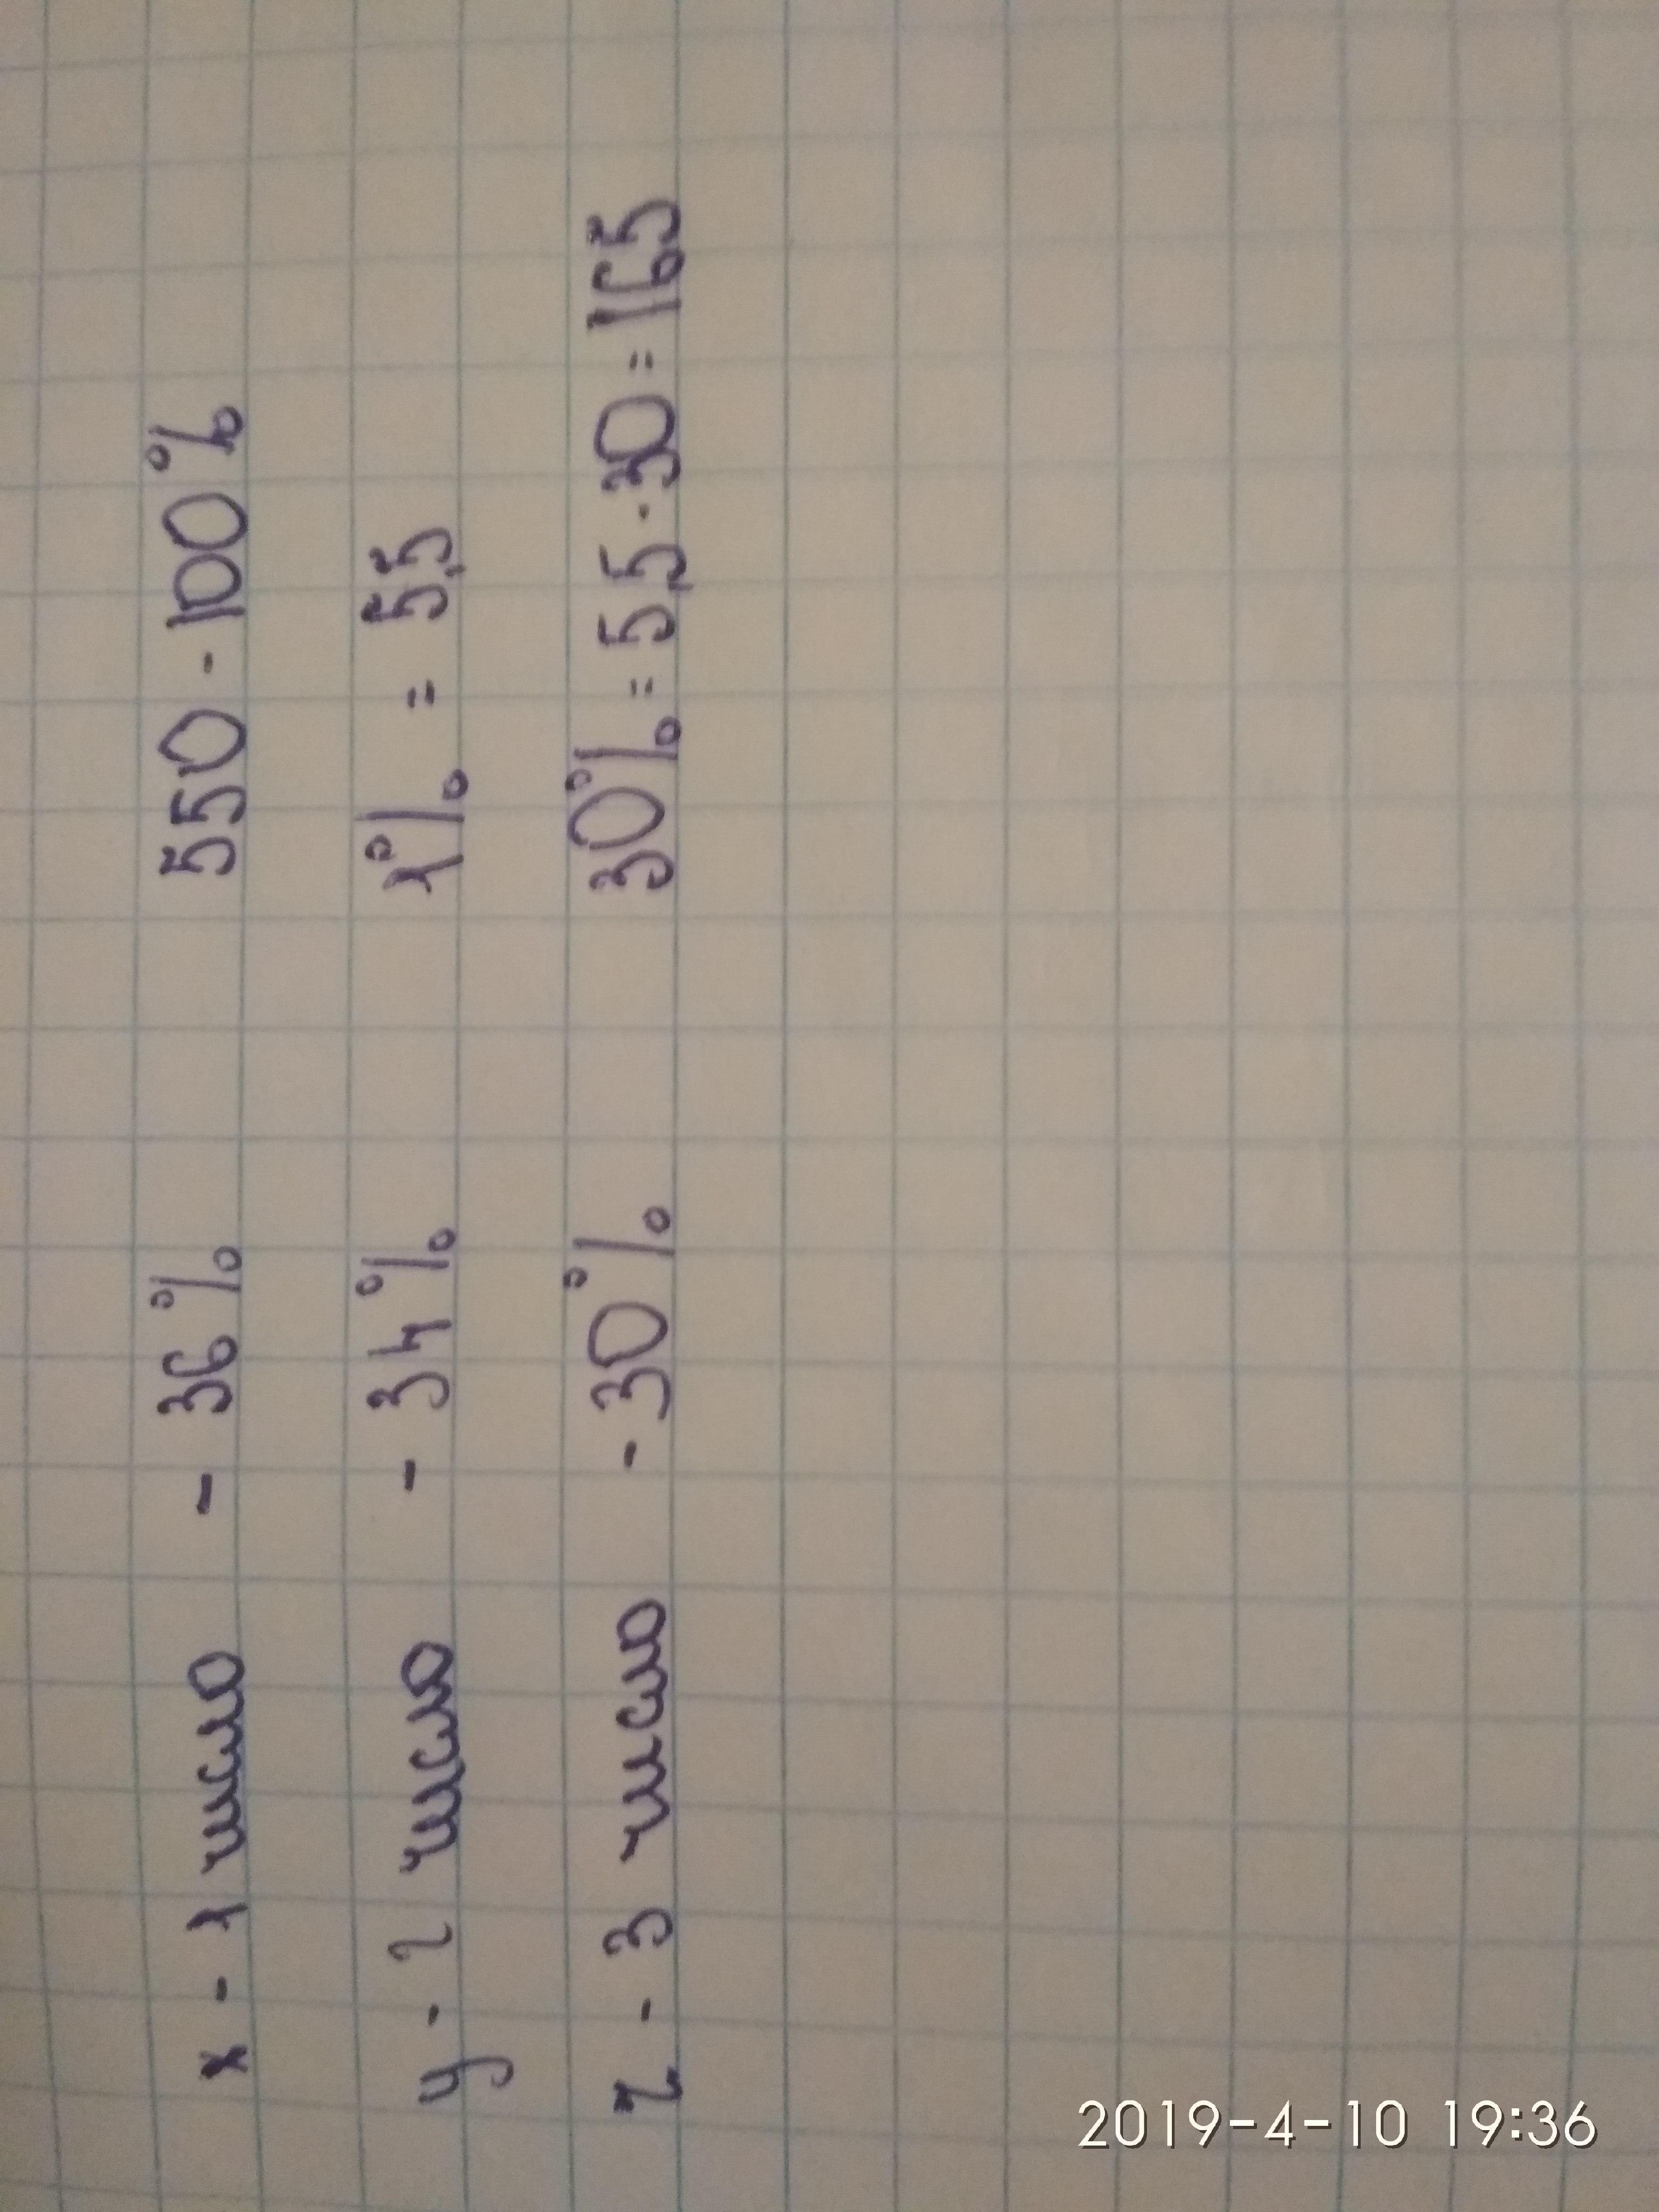 x - 1 число - 36% 550 - 100%
y - 2 число - 34% 1% = 5,5
z - 3 число - 30% 30% = 5,5 · 30 = 165
2019-4-10 19:36